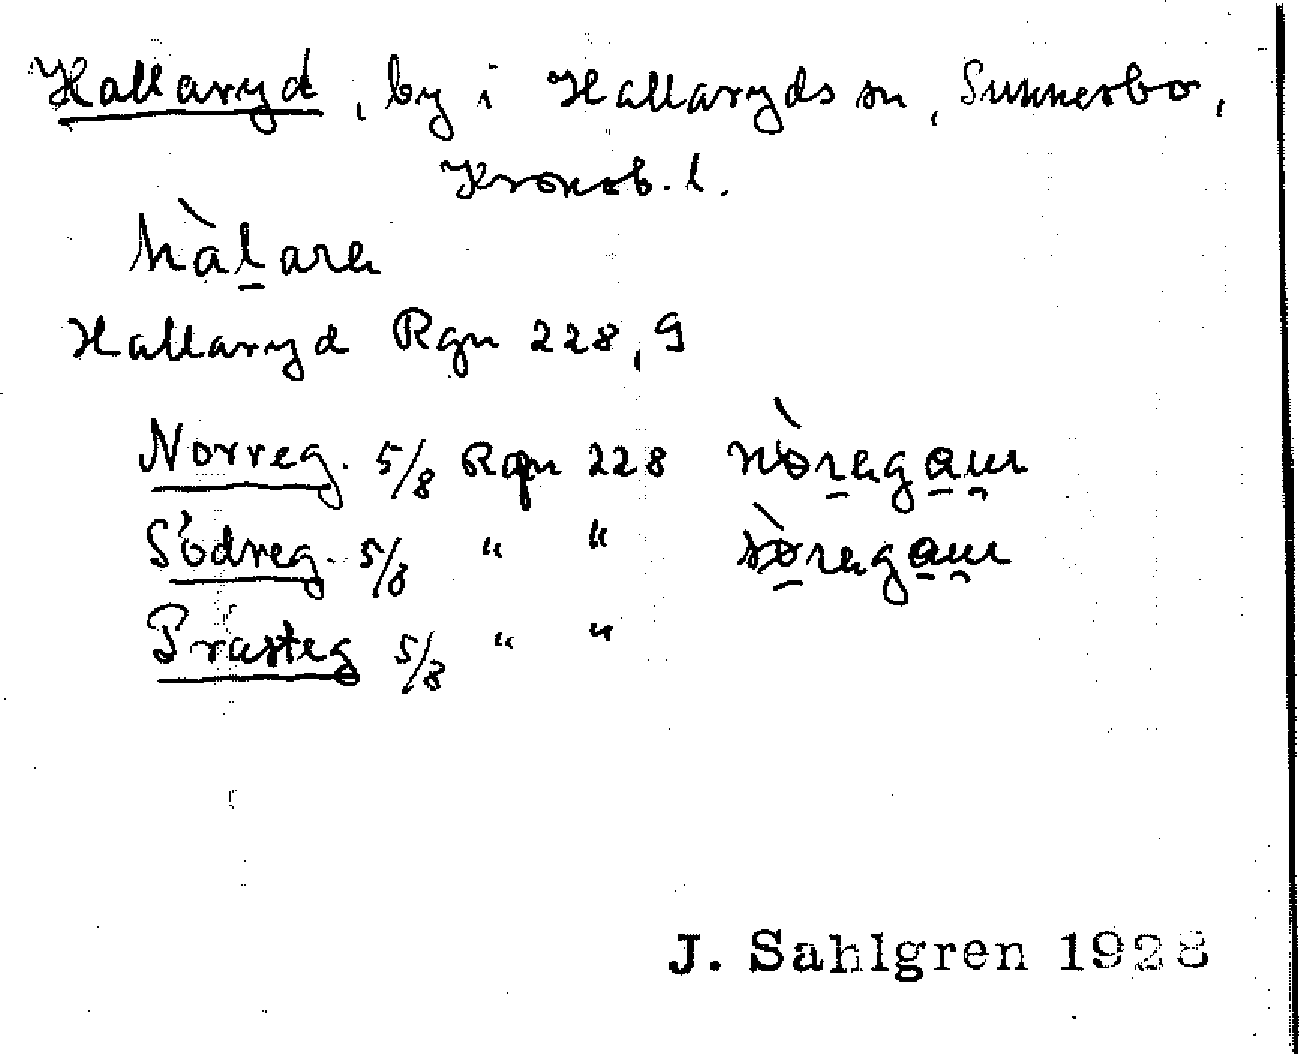 Hallaryd, by i Hallaryds sn, Sunnerbo,
Kronob. l.
hàlara
Hallaryd Rgn 228,9
Norreg. 5/8 Rgn 228 nòragaɯ
Södreg. 5/8 " " sòragaɯ
Prästeg 5/8 " "
J. Sahlgren 1928